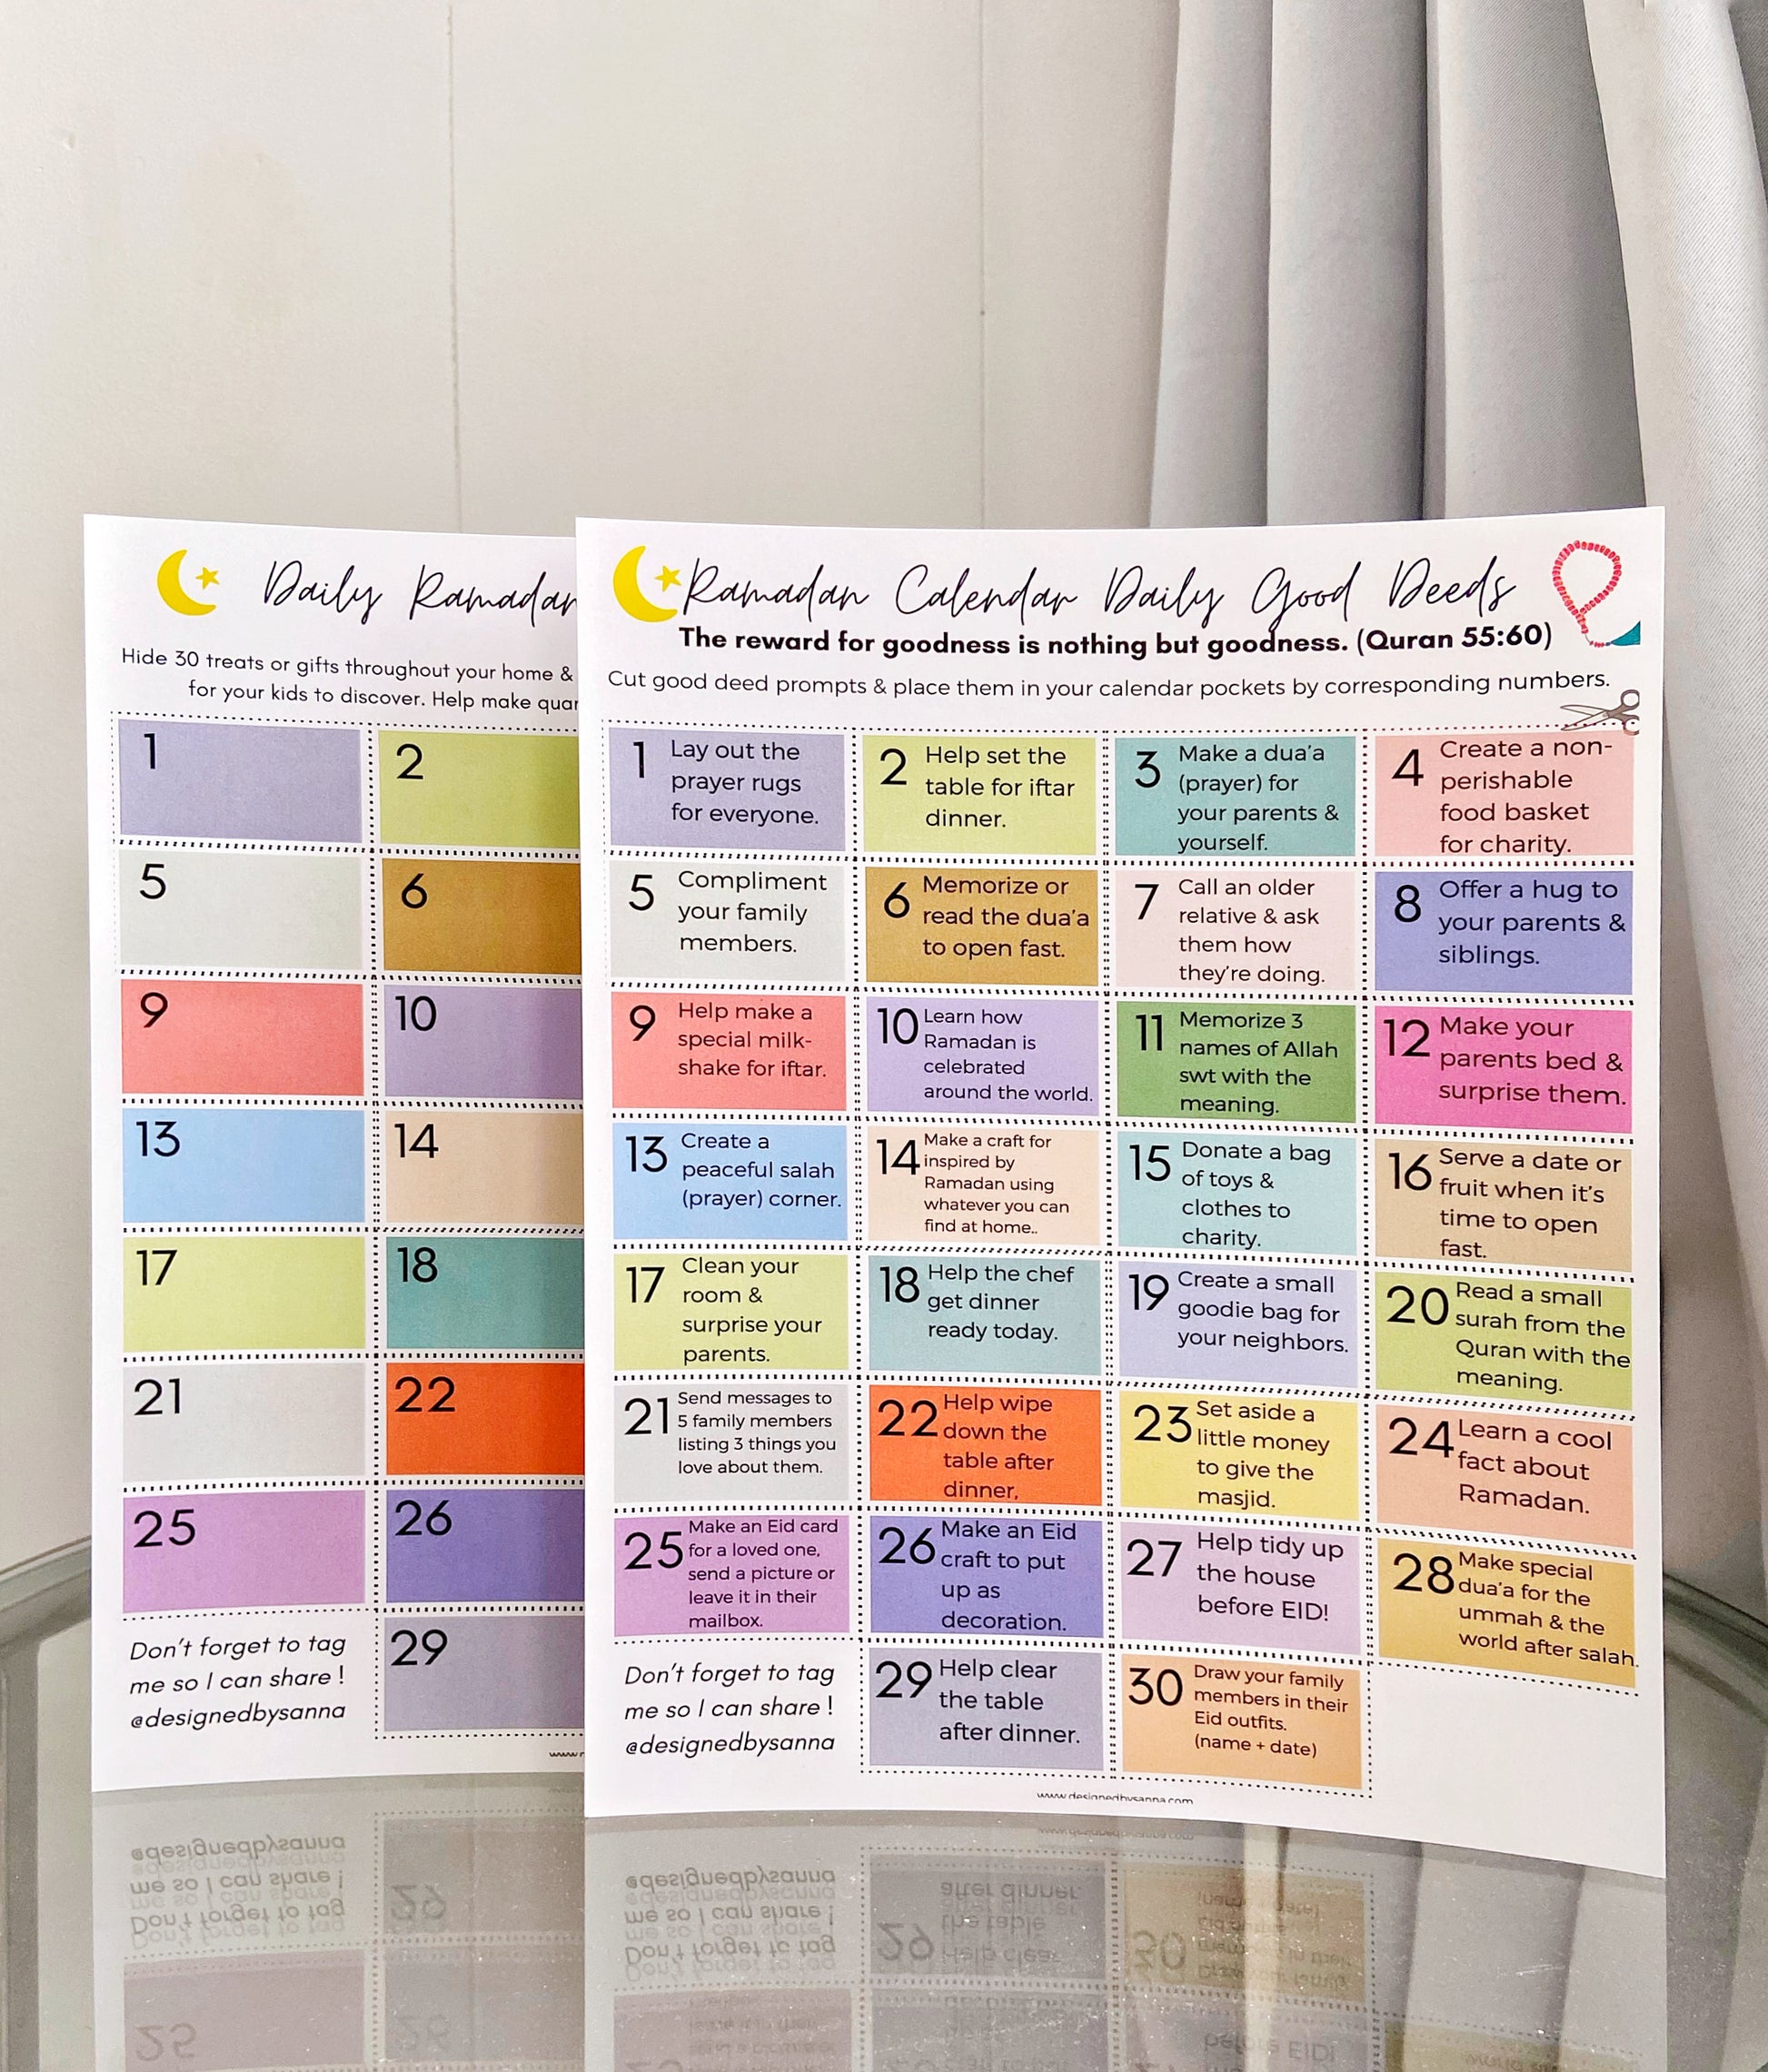 Daily Ramadan
Hide 30 treats or gifts throughout your home &
for your kids to discover. Help make
1
2
5
6
9
10
13
14
17
18
21
22
25
26
29
Don't forget to tag
me so I can share !
@designedbysanna
Ramadan Calendar Daily Good Deeds
The reward for goodness is nothing but goodness. (Quran 55:60)
Cut good deed prompts & place them in your calendar pockets by corresponding numbers.
1
Lay out the
prayer rugs
for everyone.
2
Help set the
table for iftar
dinner.
3
Make a dua'a
(prayer) for
your parents &
yourself.
4
Create a non-
perishable
food basket
for charity.
5
Compliment
your family
members.
6
Memorize or
read the dua'a
to open fast.
7
Call an older
relative & ask
them how
they're doing.
8
Offer a hug to
your parents &
siblings.
9
Help make a
special milk-
shake for iftar.
10
Learn how
Ramadan is
celebrated
around the world.
11
Memorize 3
names of Allah
swt with the
meaning.
12
Make your
parents bed &
surprise them.
13
Create a
peaceful salah
(prayer) corner.
14
Make a craft for
inspired by
Ramadan using
whatever you can
find at home..
15
Donate a bag
of toys &
clothes to
charity.
16
Serve a date or
fruit when it's
time to open
fast.
17
Clean your
room &
surprise your
parents.
18
Help the chef
get dinner
ready today.
19
Create a small
goodie bag for
your neighbors.
20
Read a small
surah from the
Quran with the
meaning.
21
Send messages to
5 family members
listing 3 things you
love about them.
22
Help wipe
down the
table after
dinner,
23
Set aside a
little money
to give the
masjid.
24
Learn a cool
fact about
Ramadan.
25
Make an Eid card
for a loved one,
send a picture or
leave it in their
mailbox.
26
Make an Eid
craft to put
up as
decoration.
27
Help tidy up
the house
before EID!
28
Make special
dua'a for the
ummah & the
world after salah.
Don't forget to tag
me so I can share !
@designedbysanna
29
Help clear
the table
after dinner.
30
Draw your family
members in their
Eid outfits.
(name + date)
www.designedbysanna.com